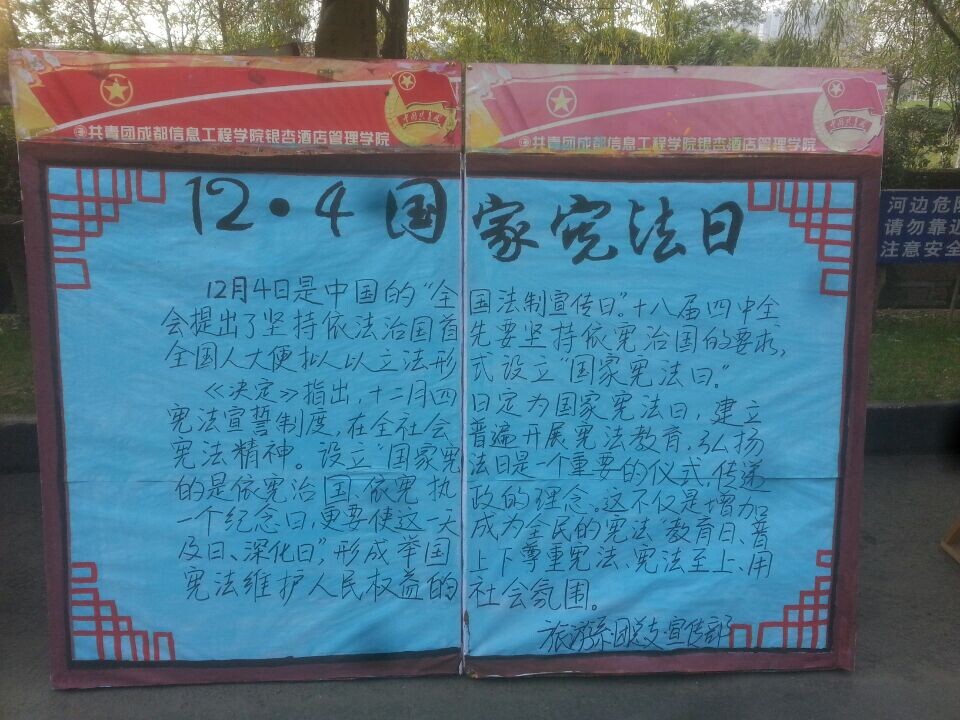 共青团成都信息工程学院银杏酒店管理学院
共青团成都信息工程学院银杏酒店管理学院
12·4国家宪法日
12月4日是中国的“全国法制宣传日”。十八届四中全
会提出了坚持依法治国首先要坚持依宪治国的要求，
全国人大便拟人以立法形式设立“国家宪法日。”
《决定》指出，十二月四日定为国家宪法日，建立
宪法宣誓制度，在全社会普遍开展宪法教育，弘扬
宪法精神。设立“国家宪法日是一个重要的仪式，传递
的是依宪治国、依宪执政的理念。这不仅是增加
一个纪念日，更要使这一天成为全民的宪法“教育日、普
及日、深化日”，形成举国上下尊重宪法、宪法至上、用
宪法维护人民权益的社会氛围。
旅游系团总支宣传部
河边危险
请勿靠近
注意安全